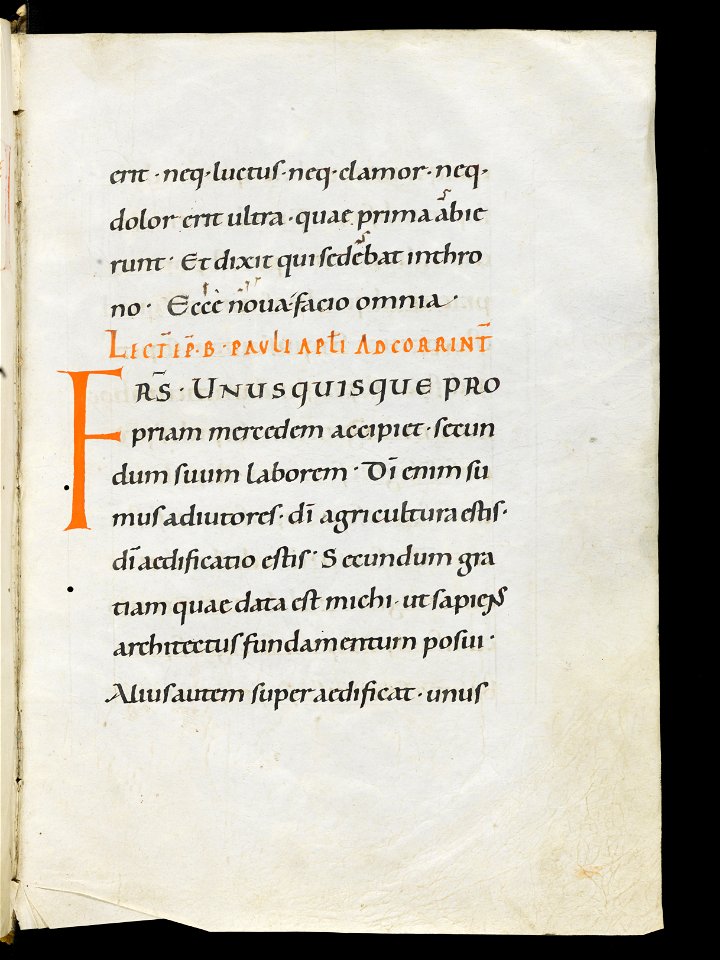 erit · neq· luctus · neq · clamor · neq·
dolor erit ultra · quae prima abie
runt · Et dixit qui sedebat inthro
no · Ecce noua facio omnia ·
LECT̄ EP̄· B · PAULI APŁI AD CORRINT̄
FRS̄ · UNUSQUISQUE PRO
priam mercedem accipiet · secun
dum suum laborem · Dī enim su
mus adiutores · dī agricultura estis ·
dī aedificatio estis · Secundum gra
tiam quae data est michi · ut sapiens
architectus fundamentum posui ·
Alius autem superaedificat · unus